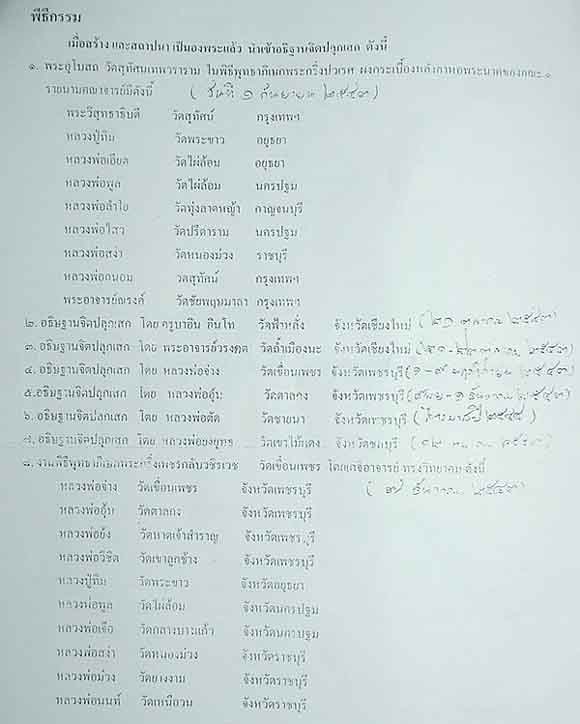 พิธีกรรม
เมื่อสร้าง และสถาปนา เป็นองพระแล้ว นำเข้าอธิฐานจิตปลุกเสก ดังนี้
๑. พระอุโบสถ วัดสุทัศนเทพวราราม ในพิธีพุทธาภิเษกพระกริ่งปวเรศ ผงกระเบื้องหลังคาหอพระนาคของคณะ ๑
รายนามคณาจารย์มีดังนี้ (วันที่ ๑ กันยายน ๒๕๔๓)
พระวิสุทธาธิบดี วัดสุทัศน์ กรุงเทพฯ
หลวงปู่ทิม วัดพระขาว อยุธยา
หลวงพ่อเอียด วัดไผ่ล้อม อยุธยา
หลวงพ่อพูล วัดไผ่ล้อม นครปฐม
หลวงพ่อลำไย วัดทุ่งลาดหญ้า กาญจนบุรี
หลวงพ่อใสว วัดปรีดาราม นครปฐม
หลวงพ่อสง่า วัดหนองม่วง ราชบุรี
หลวงพ่อถนอม วัดสุทัศน์ กรุงเทพฯ
พระอาจารย์ณรงค์ วัดชัยพฤษมาลา กรุงเทพฯ
๒. อธิษฐานจิตปลุกเสก โดย ครูบาอิน อินโท วัดฟ้าหลั่ง จังหวัดเชียงใหม่ (๒๑ ตุลาคม ๒๕๔๓)
๓. อธิษฐานจิตปลุกเสก โดย พระอาจารย์วรงคต วัดถ้ำเมืองนะ จังหวัดเชียงใหม่ ๒๕๔๓)
๔. อธิษฐานจิตปลุกเสก โดย หลวงพ่อจ่าง วัดเขื่อนเพชร จังหวัดเพชรบุรี (๑-๙ พฤศจิกายน ๒๕๔๓)
๕.อธิษฐานจิตปลุกเสก โดย หลวงพ่ออุ้น วัดตาลกง จังหวัดเพชรบุรี ๑ ธันวาคม ๒๕๔๓)
๖. อธิษฐานจิตปลุกเสก โดย หลวงพ่อตัด วัดชายนา จังหวัดเพชรบุรี (ไตรมาสปี ๒๕๔๔)
๗. อธิษฐานจิตปลุกเสก โดย หลวงพ่อยงยุทธ วัดเขาไม้แดง จังหวัดชลบุรี
๘. งานพิธีพุทธาภิเษกพระกริ่งเพชรกลับวชิรเวช วัดเขื่อนเพชร โดยเกจิอาจารย์ ทรงวิทยาคม ดังนี้
หลวงพ่อจ่าง วัดเขื่อนเพชร จังหวัดเพชรบุรี ธันวาคม ๒๕๔๓)
หลวงพ่ออุ้น วัดตาลกง จังหวัดเพชรบุรี
หลวงพ่อยิ้ง วัดหาดเจ้าสำราญ จังหวัดเพชรบุรี
หลวงพ่อวิชิต วัดเขาลูกช้าง จังหวัดเพชรบุรี
หลวงปู่ทิม วัดพระขาว จังหวัดอยุธยา
หลวงพ่อพูล วัดไผ่ล้อม จังหวัดนครปฐม
หลวงพ่อเจือ วัดกลางบางแก้ว จังหวัดนครปฐม
หลวงพ่อสง่า วัดหนองม่วง จังหวัดราชบุรี
หลวงพ่อม่วง วัดยางงาม จังหวัดราชบุรี
หลวงพ่อนนท์ วัดเหนือวน จังหวัดราชบุรี